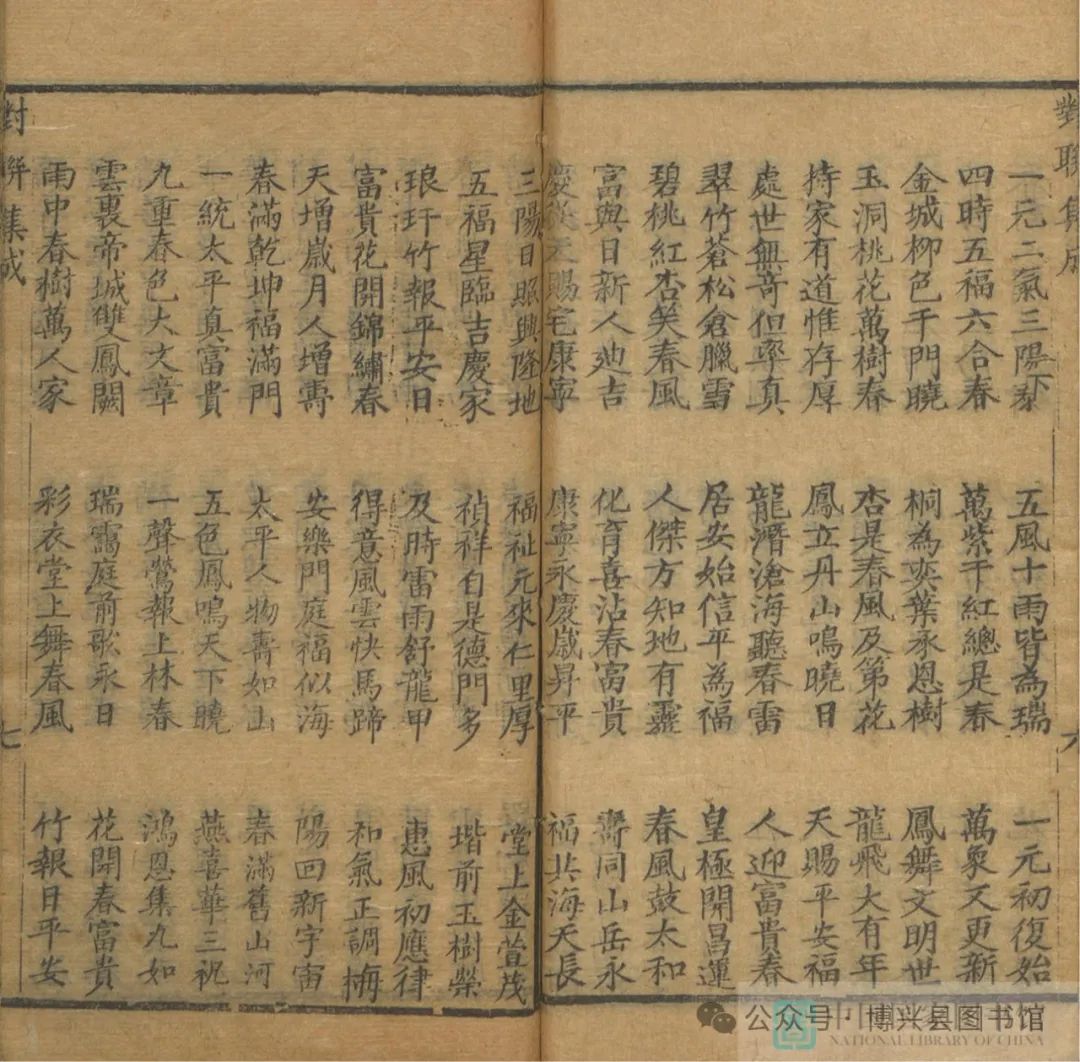 對聯集成
一元二氣三陽泰
四時五福六合春
金城柳色千門曉
玉洞桃花萬樹春
持家有道惟存厚
處世無竒但率真
翠竹蒼松飡臘雪
碧桃紅杏笑春風
富與日新人廸吉
慶從天賜宅康寧
五風十雨皆為瑞
萬紫千紅總是春
桐為奕葉承恩樹
杏是春風及第花
鳳立丹山鳴曉日
龍潛滄海聽春雷
居安始信平為福
人傑方知地有靈
化育喜沾春富貴
康寧永慶歲昇平
一元初復始
萬象又更新
鳳舞文明世
龍飛大有年
天賜平安福
人迎富貴春
皇極開昌運
春風鼓太和
壽同山岳永
福共海天長
六
三陽日照興隆地
五福星臨吉慶家
琅玕竹報平安日
富貴花開錦繡春
天增歲月人增壽
春滿乾坤福滿門
一統太平真富貴
九重春色大文章
雲裏帝城雙鳳闕
雨中春樹萬人家
福祉元來仁里厚
禎祥自是德門多
及時雷雨舒龍甲
得意風雲快馬蹄
安樂門庭福似海
太平人物壽如山
五色鳳鳴天下曉
一聲鶯報上林春
瑞靄庭前歌永日
彩衣堂上舞春風
堂上金萱茂
堦前玉樹榮
惠風初應律
和氣正調梅
陽回新宇宙
春滿舊山河
燕喜華三祝
鴻恩集九如
花開春富貴
竹報日平安
對聯集成
七
公众号·博兴县图书馆
NATIONAL LIBRARY OF CHINA